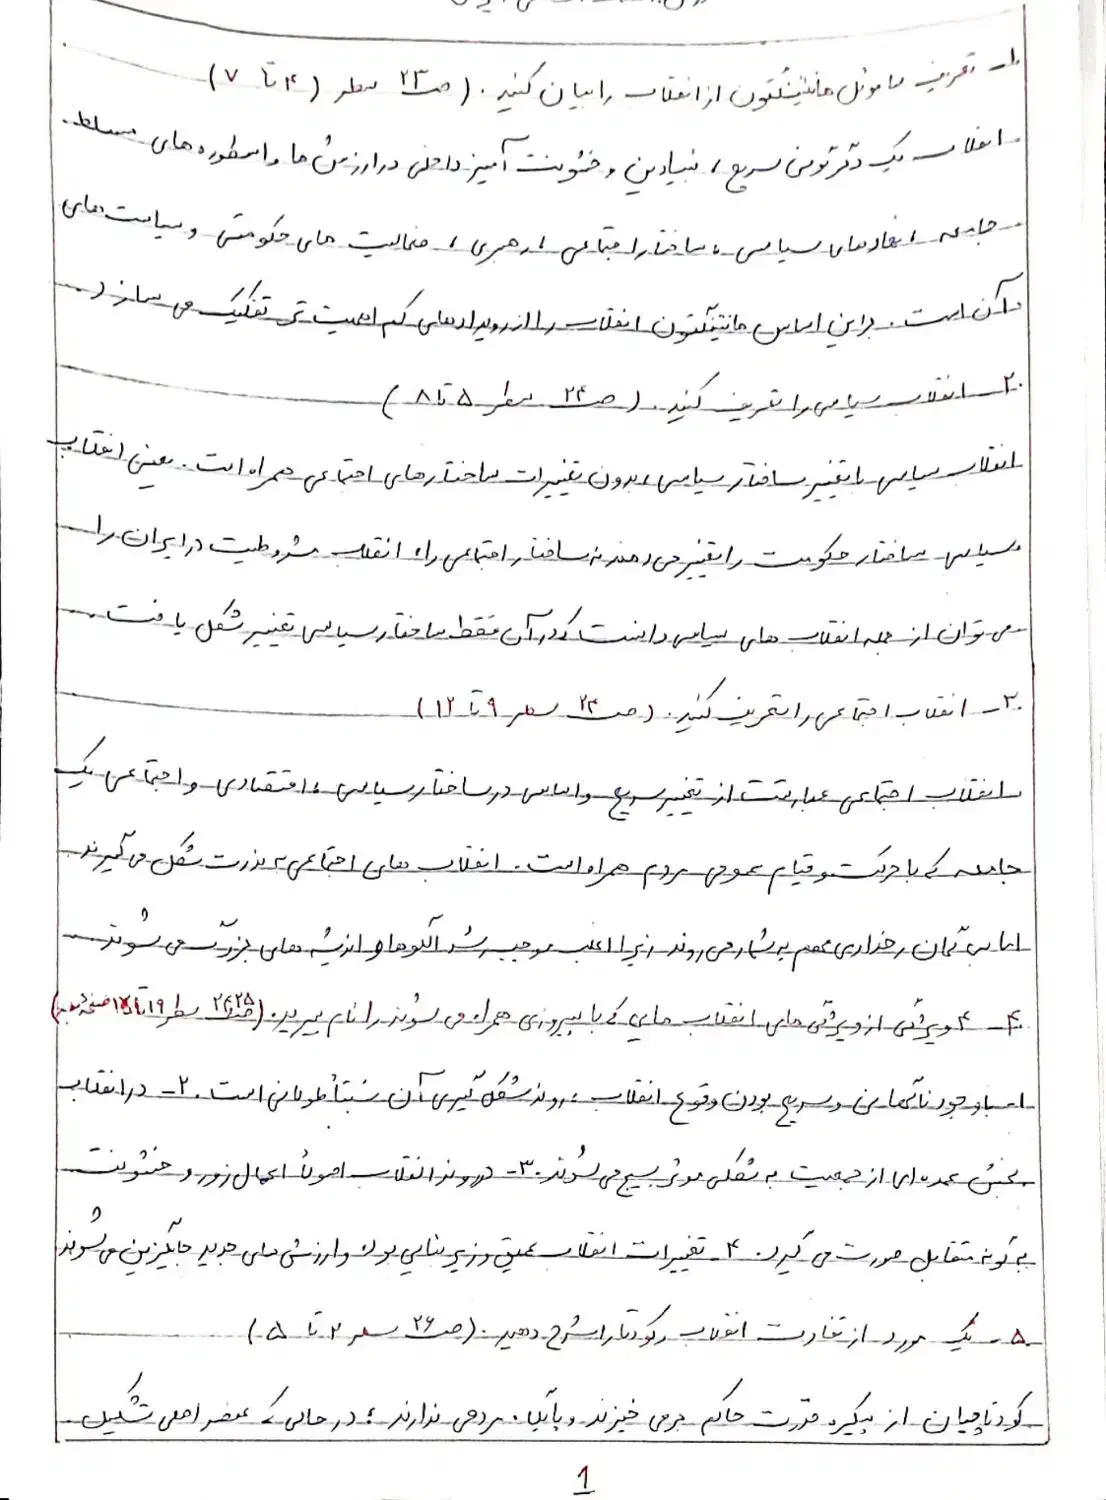 ۱- تعریف ساموئل هانتینگتون از انقلاب را بیان کنید. (ص ۲۳ سطر ۴ تا ۷)
انقلاب یک دگرگونی سریع، بنیادین و خشونت آمیز داخلی در ارزش ها و اسطوره های مسلط
جامعه، نهادهای سیاسی، ساختار اجتماعی، رهبری، فعالیت های حکومتی و سیاست های
آن است. براین اساس هانتینگتون انقلاب را از رویدادهای کم اهمیت تر تفکیک می سازد.
۲- انقلاب سیاسی را تعریف کنید. (ص ۲۴ سطر ۵ تا ۸)
انقلاب سیاسی با تغییر ساختار سیاسی، بدون تغییرات ساختارهای اجتماعی همراه است. یعنی انقلاب
سیاسی ساختار حکومت را تغییر می دهد نه ساختار اجتماعی را، انقلاب مشروطیت در ایران را
می توان از جمله انقلاب های سیاسی دانست که در آن فقط ساختار سیاسی تغییر شکل یافت.
۳- انقلاب اجتماعی را تعریف کنید. (ص ۲۴ سطر ۹ تا ۱۲)
انقلاب اجتماعی عبارتست از تغییر سریع و اساسی در ساختار سیاسی، اقتصادی و اجتماعی یک
جامعه که با حرکت و قیام عمومی مردم همراه است. انقلاب های اجتماعی به ندرت شکل می گیرند
اما بی گمان رخدادی مهم به شمار می روند زیرا اغلب موجب رشد الگوها و اندیشه های بزرگ می شوند
۴- ۴ ویژگی از ویژگی های انقلاب هایی که با پیروزی همراه می شوند را نام ببرید. (ص ۲۵ سطر ۱۹ تا
۱- با وجود ناگهانی و سریع بودن وقوع انقلاب، روند شکل گیری آن نسبتاً طولانی است. ۲- در انقلاب
بخش عمده ای از جمعیت به شکلی موثر بسیج می شوند. ۳- در روند انقلاب اصولاً اعمال زور و خشونت
به گونه متقابل صورت می گیرد. ۴- تغییرات انقلاب عمیق و زیربنایی بوده و ارزش های جدید جایگزین می شوند
۵- یک مورد از تفاوت انقلاب و کودتا را شرح دهید. (ص ۲۶ سطر ۲ تا ۵)
کودتاچیان از پیکره قدرت حاکم برمی خیزند و پایگاه مردمی ندارند؛ در حالی که عنصر اصلی تشکیل
1